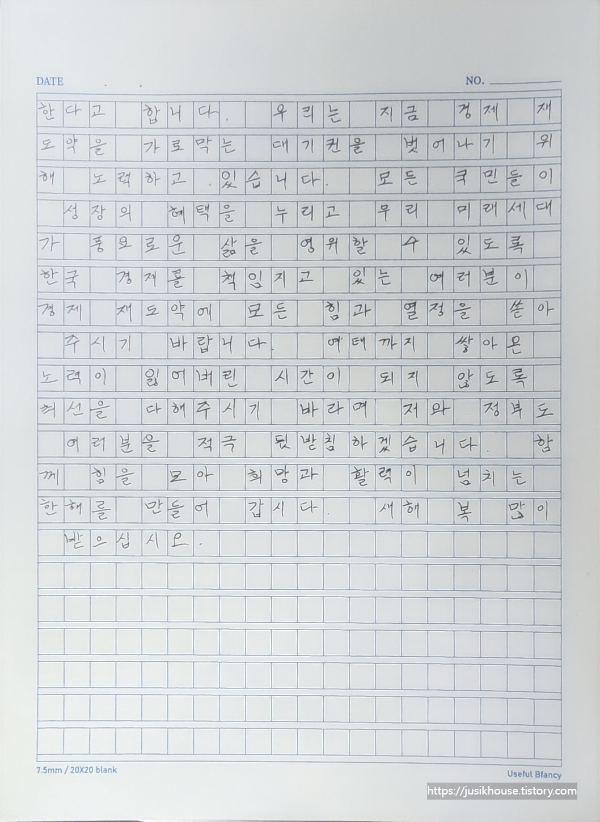 DATE NO.
한다고 합니다. 우리는 지금 경제 재
도약을 가로막는 대기권을 벗어나기 위
해 노력하고 있습니다. 모든 국민들이
성장의 혜택을 누리고 우리 미래세대
가 풍요로운 삶을 영위할 수 있도록
한국 경제를 책임지고 있는 여러분이
경제 재도약에 모든 힘과 열정을 쏟아
주시기 바랍니다. 여태까지 쌓아온
노력이 잃어버린 시간이 되지 않도록
최선을 다해주시기 바라며 저와 정부도
여러분을 적극 뒷받침하겠습니다. 함
께 힘을 모아 희망과 활력이 넘치는
한해를 만들어 갑시다. 새해 복 많이
받으십시오.
7.5mm / 20X20 blank Useful Bfancy
https://jusikhouse.tistory.com